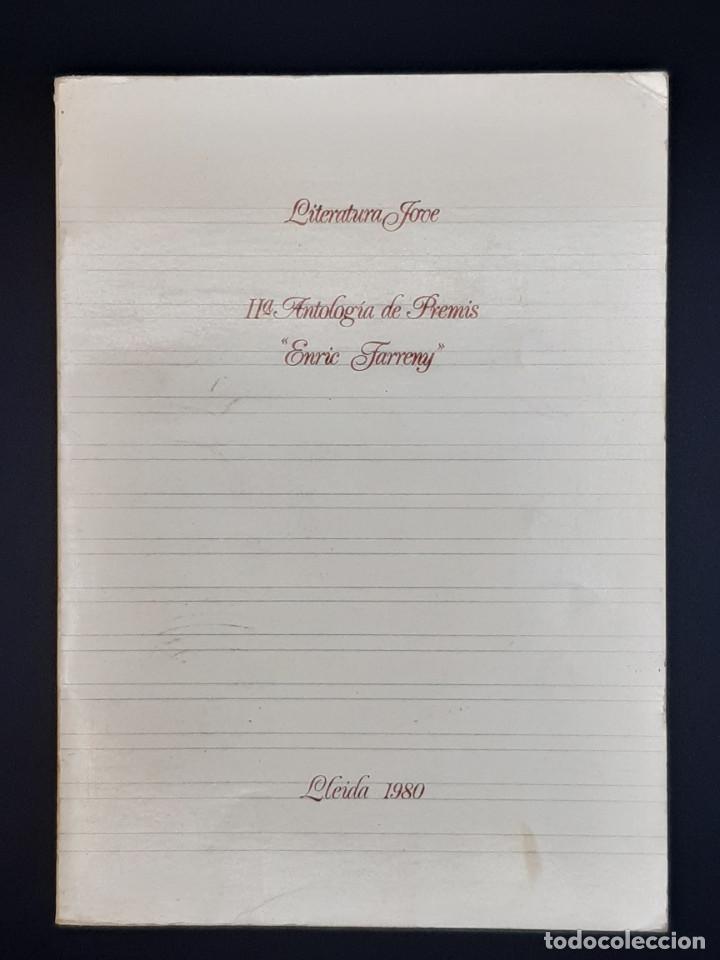 Literatura Jove
IIª Antología de Premis
"Enric Farreny"
Lleida 1980
todocoleccion
todocoleccion.net